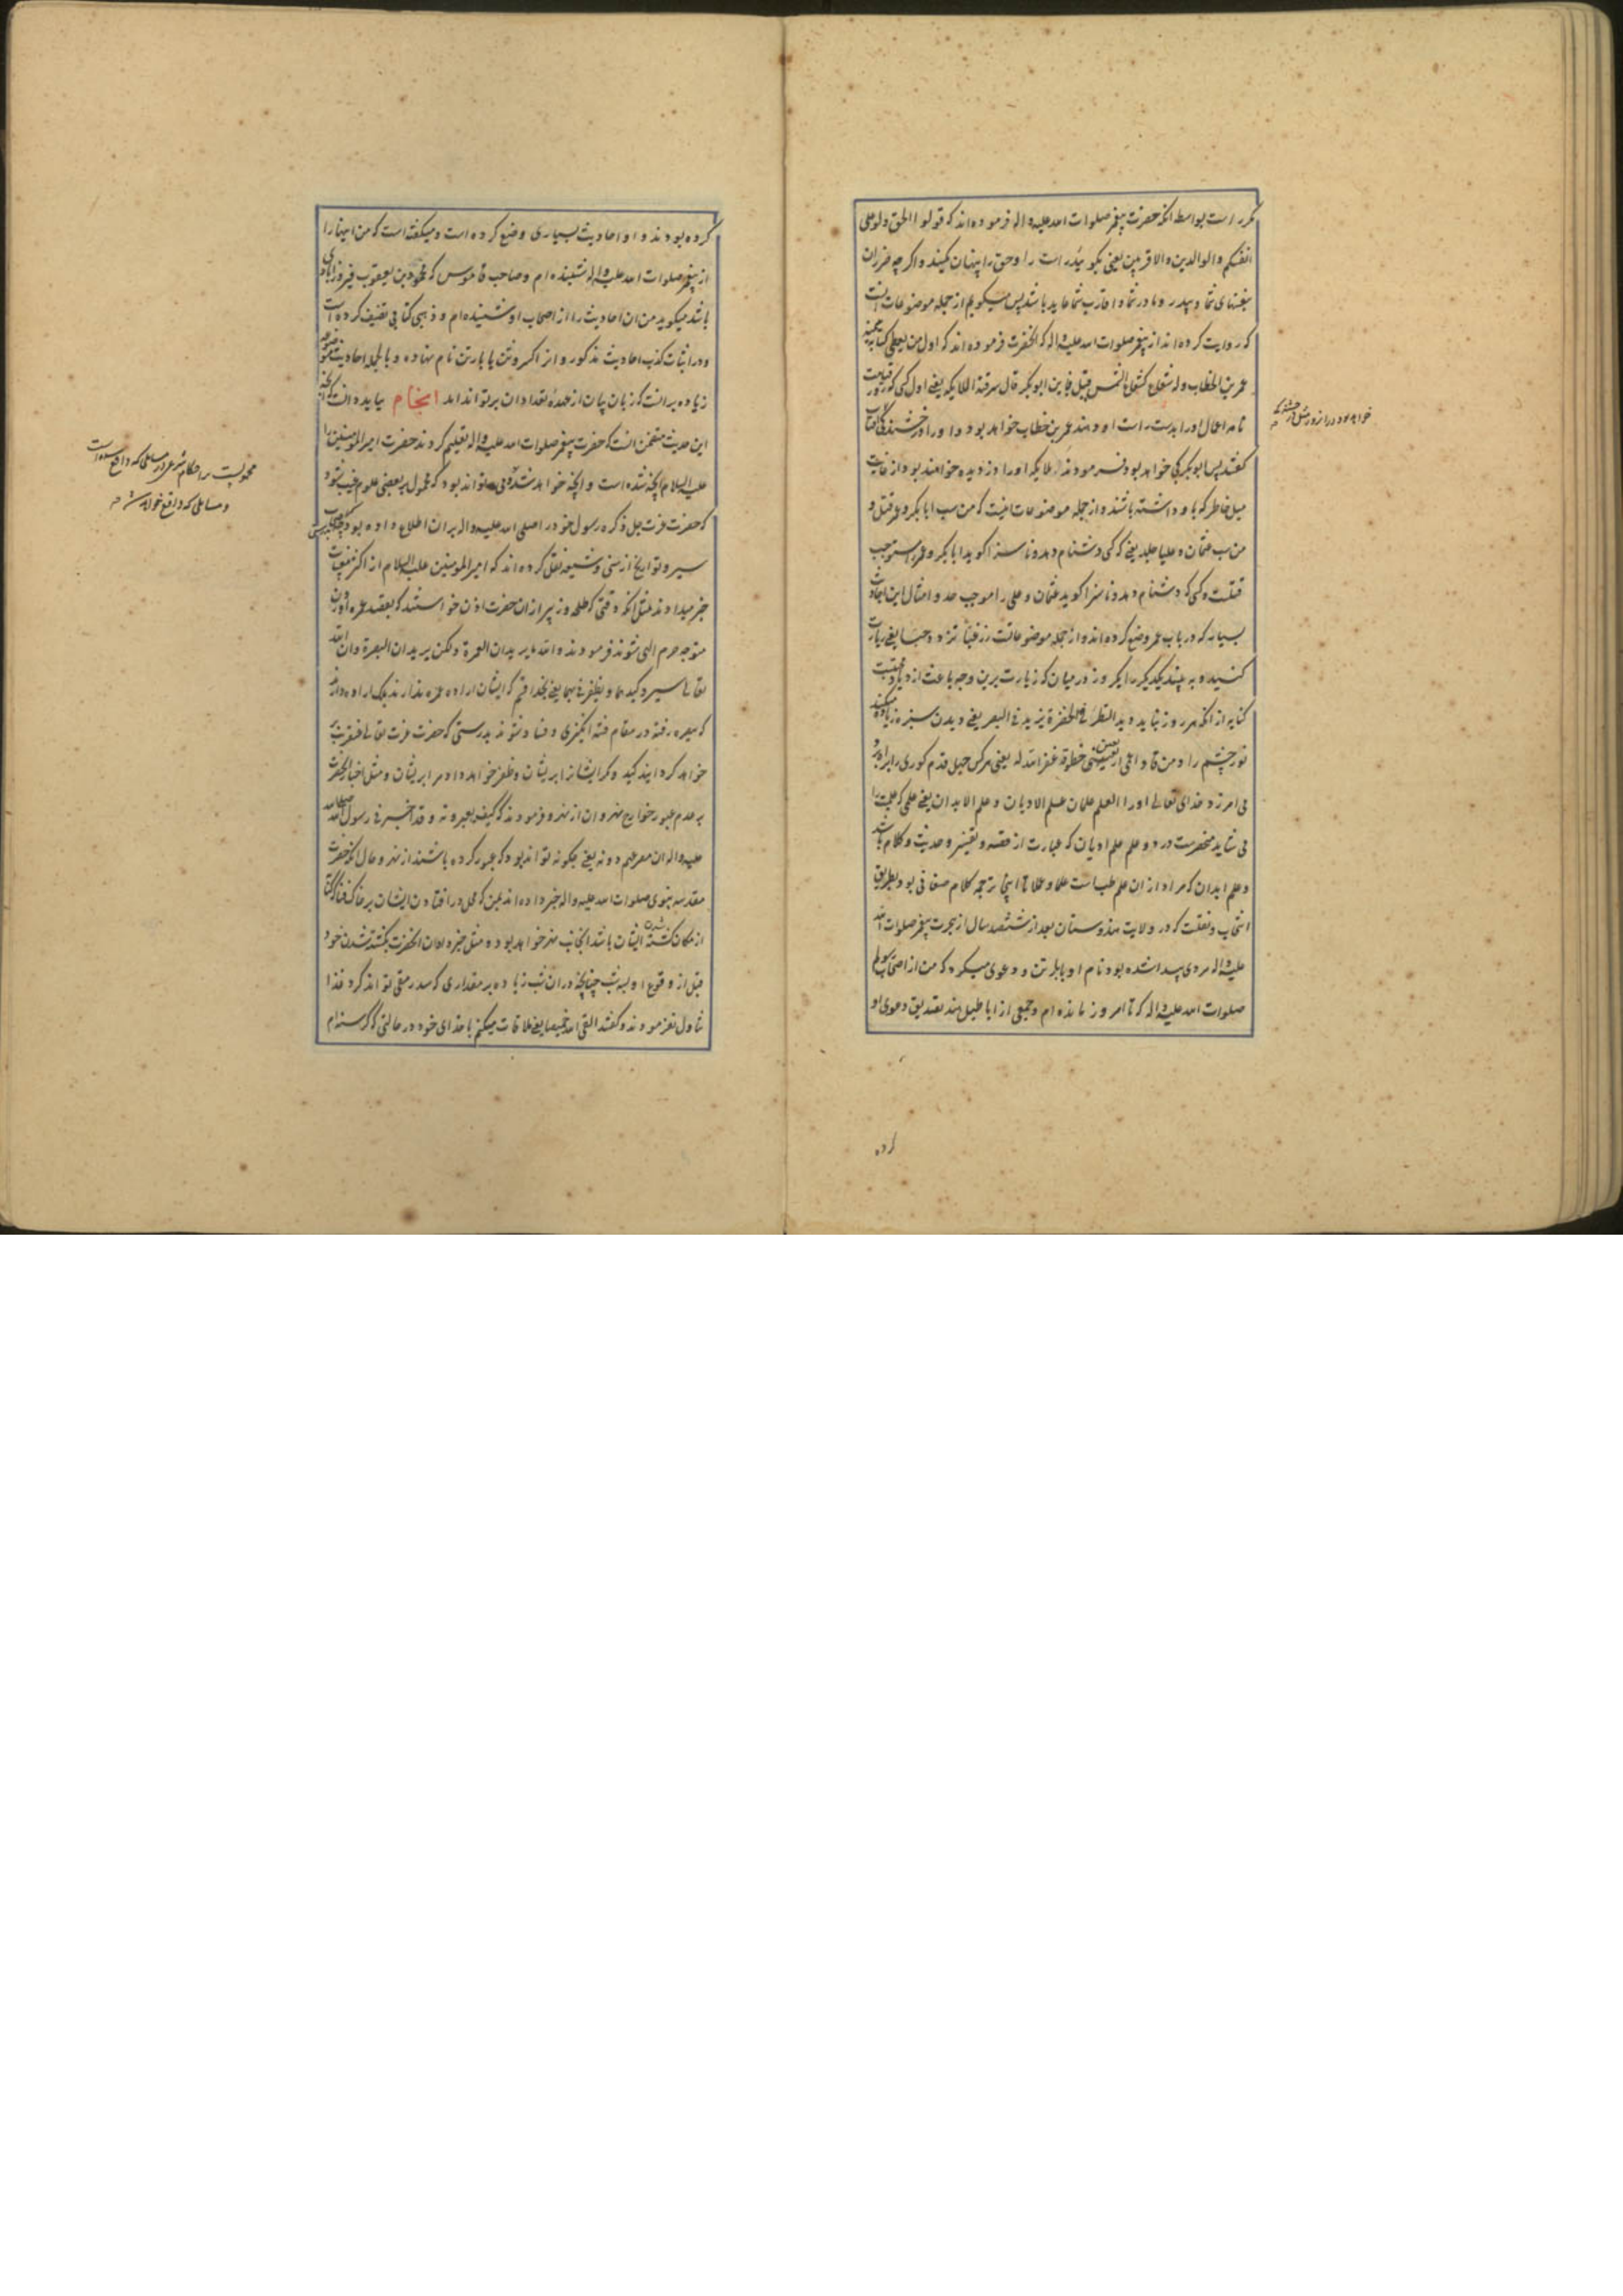 مکرر است بواسطه انکه حضرت پیغمبر صلوات الله علیه و اله فرموده اند که قولوا الحق ولو علی
انفسکم والوالدین والاقربین یعنی بگوئید راست را و حق را پنهان مکنید و اگر چه ضرر ان
بنفسهای شما و پدر و مادر شما و اقارب شما عاید باشد پس میگویم از جمله موضوعات انست
که روایت کرده اند از پیغمبر صلوات الله علیه و اله که انحضرت فرموده اند که اول من یعطی کتابه بیمینه
عمر بن الخطاب وله شعاع کشعاع الشمس قیل فاین ابوبکر قال سرقته الملایکه یعنی اول کسی که روز قیامت
نامه اعمال او را بدست راست او دهند عمر بن خطاب خواهد بود و او را درخشندگی افتاب
خواهد بود در انروز مثل درخشندگی
گفتند پس ابوبکر کی خواهد بود فرمودند ملایکه او را دزدیده خواهند بود از غایت
میل خاطر که باو داشته باشند و از جمله موضوعات اینست که من سب ابابکر و عمر قتل و
من سب عثمان و علیا جلد یعنی که کسی دشنام دهد و ناسزا گوید ابابکر و عمر را مستوجب
قتلست و کسی که دشنام دهد و ناسزا گوید عثمان و علی را موجب حد و امثال این احادیث
بسیار که در باب عمر وضع کرده اند و از جمله موضوعاتست زر غبا تزدد حبا یعنی زیارت
کنید و به بینید یکدیگر را یکروز در میان که زیارت برین وجه باعث ازدیاد محبتست
کنایه از انکه هر روز نباید دید النظر فی الخضرة یزید فی البصر یعنی دیدن سبزه زیاده میکند
نور چشم را و من قاد اعمی اربعین خطوة غفر الله له یعنی هر کس چهل قدم کوری را براه برد
می امرزد خدای تعالی او را العلم علمان علم الادیان و علم الابدان یعنی علمی که طلبش را
می شاید منحصرست در دو علم علم ادیان که عبارت از فقه و تفسیر و حدیث و کلام باشد
و علم ابدان که مراد از ان علم طب است علما و علاجا اینجا ترجمه کلام صغانی بود بطریق
انتخاب و نقلست که در ولایت هندوستان بعد از ششصد سال از هجرت پیغمبر صلوات الله
علیه و اله مردی پیدا شده بود نام او بابا رتن و دعوی میکرد که من از اصحاب رسولم
صلوات الله علیه و اله که تا امروز مانده ام و جمعی از اباطیل هند تصدیق دعوی او
کرده
کرده بودند و او احادیث بسیاری وضع کرده است و میگفته است که من اینها را
از پیغمبر صلوات الله علیه و اله شنیده ام و صاحب قاموس که محمد بن یعقوب فیروزابادی
باشد میگوید من ان احادیث را از اصحاب او شنیده ام و ذهبی کتابی تصنیف کرده است
و در اثبات کذب احادیث مذکور و انرا کسر وثن بابا رتن نام نهاده و بالجمله احادیث موضوعه
زیاده بر انست که زبان بیان از عهده تعداد ان بر تواند امد انجام بباید دانست که انچه
این حدیث متضمن انست که حضرت پیغمبر صلوات الله علیه و اله تعلیم کردند حضرت امیر المومنین را
علیه السلام انچه شده است و انچه خواهد شد می تواند بود که محمول بر بعضی علوم غیب شود
محمولست بر احکام شرعی در مسایلی که واقع شده است
و مسایلی که واقع خواهد شد
که حضرت عزت جل ذکره رسول خود را صلی الله علیه و اله بر ان اطلاع داده بود چنانچه
سیر و تواریخ از سنی و شیعه نقل کرده اند که امیر المومنین علیه السلام از اکثر مغیبات
خبر میدادند مثل انکه وقتی که طلحه و زبیر از ان حضرت اذن خواستند که بقصد عمره
متوجه حرم الهی شوند فرمودند والله ما یریدان العمرة ولکن یریدان البصرة وان الله
تعالی سیرد کیدهما و یظفرنی بهما یعنی بخدا قسم که ایشان اراده عمره ندارند بلکه اراده دارند
که ببصره رفته در مقام فتنه انگیزی و فساد شوند بدرستی که حضرت عزت تعالی عنقریب رد
خواهد گردانید کید و مکر ایشانرا بر ایشان و ظفر خواهد داد مرا بر ایشان و مثل اخبار انحضرت
بر عدم عبور خوارج نهروان از نهر و فرمودند که کیف یعبرونه و قد اخبرنی رسول الله صلی الله
علیه و اله ان مصرعهم دونه یعنی چگونه تواند بود که عبور کرده باشند از نهر و حال انکه حضرت
مقدسه نبوی صلوات الله علیه و اله خبر داده اند بمن که محل در افتادن ایشان بر خاک
از مکان کشته شدن ایشان باشد اینجانب نهر خواهد بود و مثل خبر دادن انحضرت بکشته شدن خود
قبل از وقوع او بسه شب چنانچه در ان شب زیاده بر مقداری که سد رمقی تواند کرد غذا
تناول نفرمودند و گفتند القی الله خمیصا یعنی ملاقات میکنم با خدای خود در حالتی که گرسنه ام